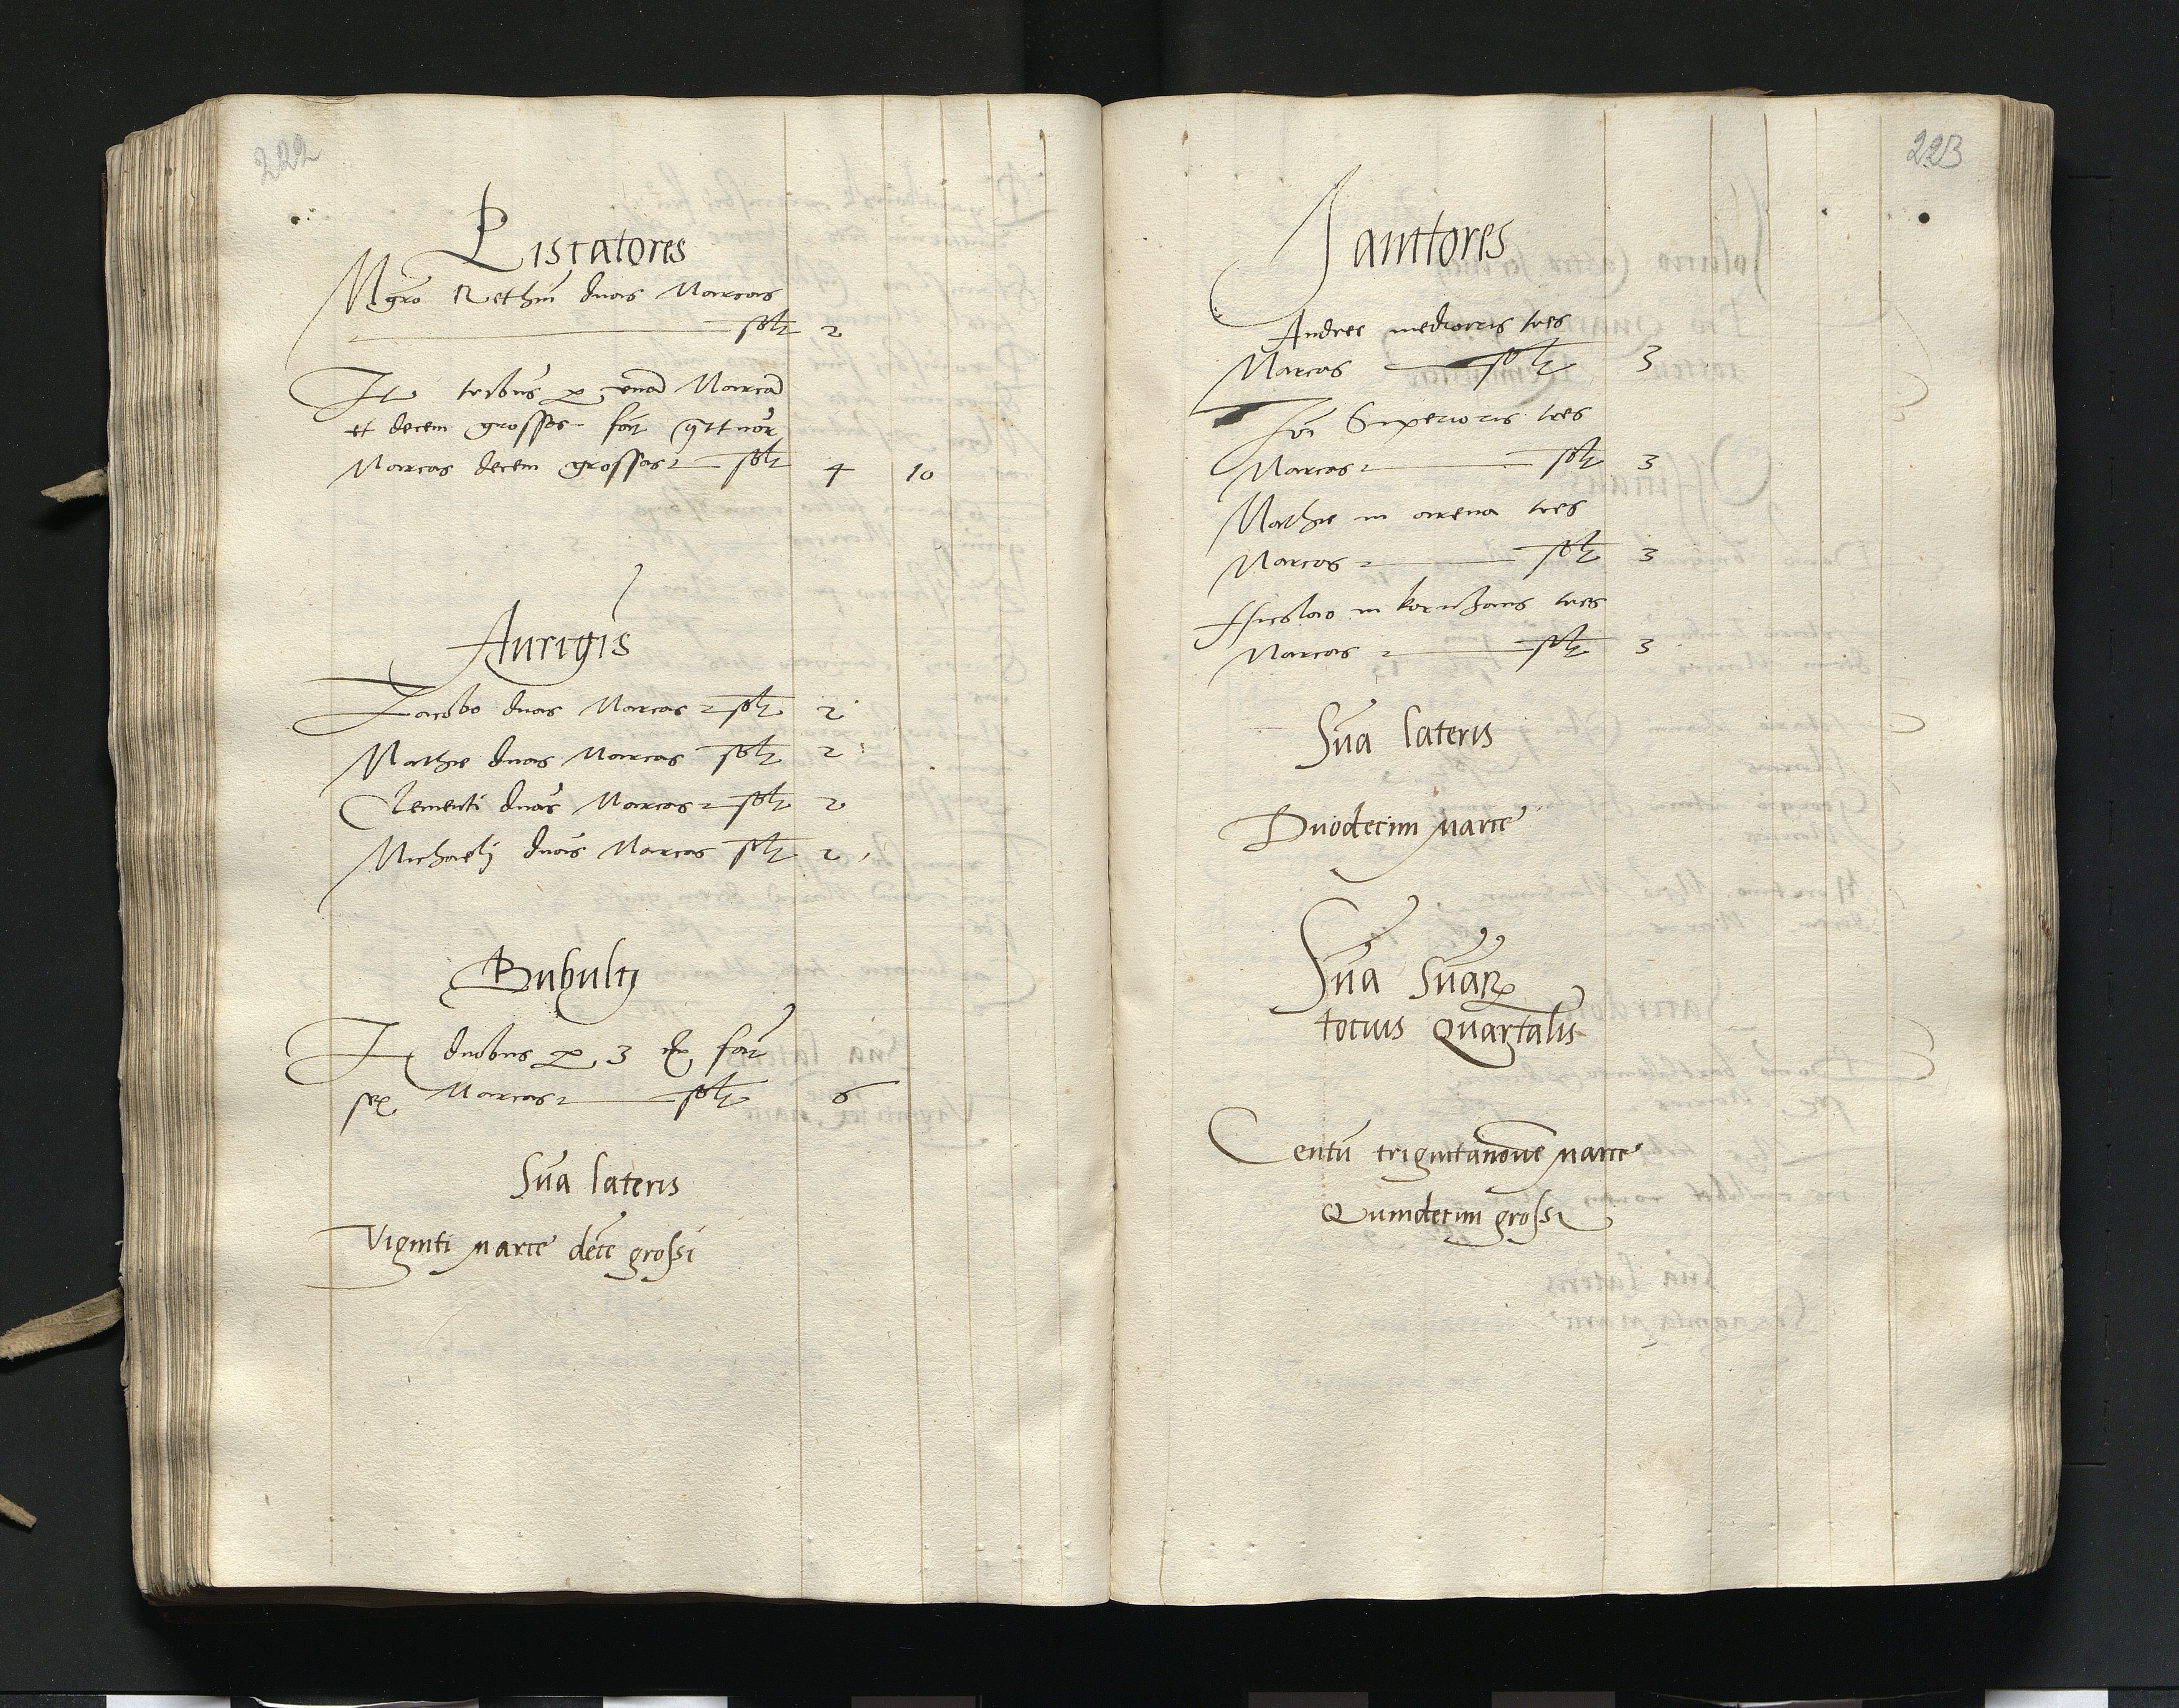 222
Piscatores
Mgro Rethm duas Marcas
solt 2
It tribus p unã Marcã
et decem grossos fac̃t qttuor
Marcas decem grossos solt 4 10
Aurigis
Jacobo duas Marcas solt 2
Mathie duas Marcas solt 2
Clementi duas Marcas solt 2
Michaelj duas Marcas solt 2
Bubulcj
It duobus p 3 fac̃t
sex Marcas solt 6
Sũa lateris
Viginti marce decẽ grossi
223
Janitores
Andree mediocris tres
Marcas solt 3
Joĩ Superioris tres
Marcas solt 3
Mathie in arena tres
Marcas solt 3
Nicolao in kornhaus tres
Marcas solt 3
Sũa lateris
Duodecim marce
Sũa Sũaꝝ
totius Quartalis
Centũ trigintanovẽ marce
Quindecim grossi